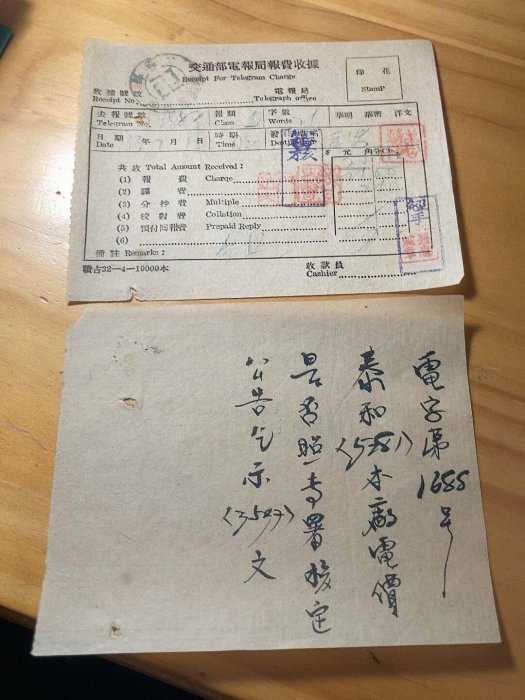 交通部電報局報費收據
Receipt For Telegram Charge
印花
StamP
收據號數
Receipt No.
電報局
Telegraph office
去報號數
Telegram No.
報類
Class
字數
Words
華明 華密 洋文
日期
Date
年 月 日
時期
Time
發
Destination
核
元 角 分
共收 Total Amount Received:
(1) 報費 Charge
(2) 譯費
(3) 分抄費 Multiple
(4) 校對費 Collation
(5) 預付回報費 Prepaid Reply
(6)
備註 Remarks:
收款員
Cashier
贛吉32—4—10000本
電字第1688号
泰和(5781)本廠電價
是否照專署核定
公告乞示(3587)文